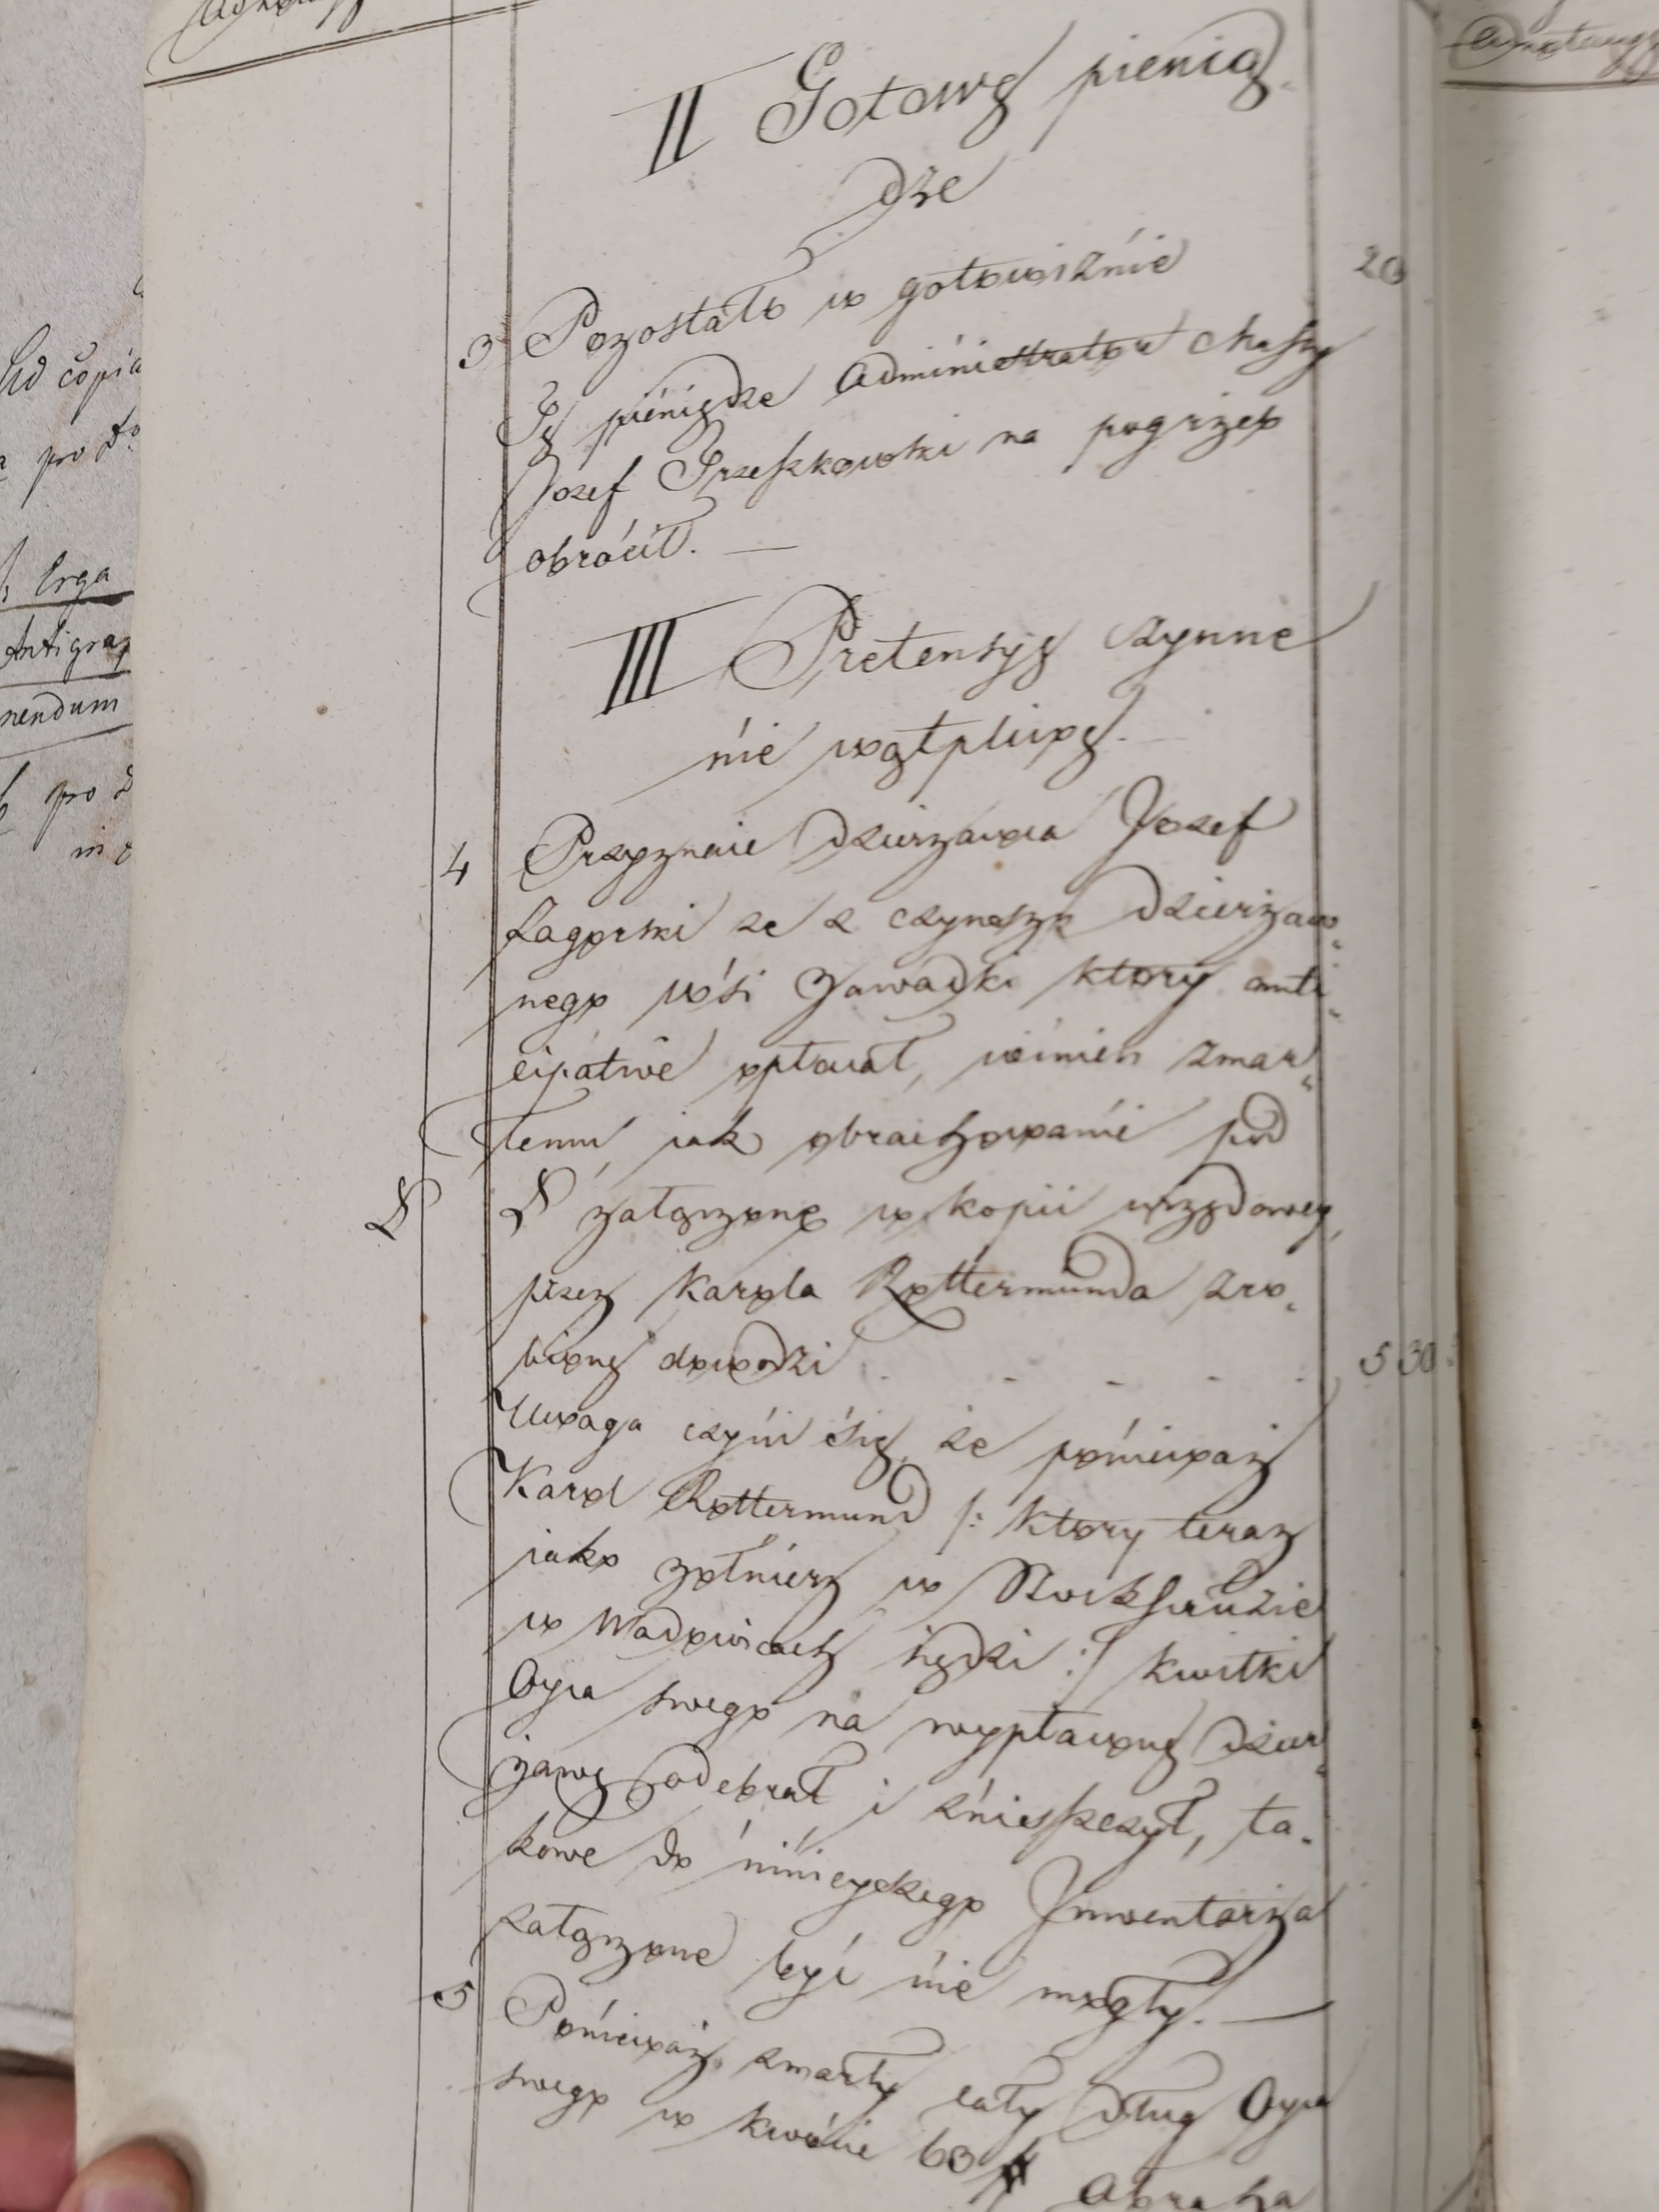 II Gotowe pienią-
dze
3 Pozostało w gotowiznie 20
Te pieniędze Administrator Massy
Jozef Przeszkowski na pogrzeb
obrócił. —
III Pretensye czynne
nie wątpliwe.
4 Przyznaie dzierzawca Jozef
Zagorski ze z czynszu dzierzaw-
nego wśi Zawadki ktory anti-
cipative opłacał, winien zmar-
łemu, jak obrachowanie pod
załączone w kopii urzędowey,
przez Karola Rottermunda zro-
bione dowodzi . - - - . 5 30
Uwaga czyni śię, że ponieważ
Karol Rottermund /: ktory teraz
jako zołnierz w Stockhauzie
w Wadowicach siędzi :/ kwitki
Oyca swego na wypłacone dzier-
zawę odebrał i zniszczył, ta-
kowe do ninieyszego Inwentarza
załączone być nie mogły. —
5 Ponieważ zmarły cały dług Oyca
swego w kwocie 63 # Abraha
Ad copia
pro
Erga
Antigrap
nendum
pro
in